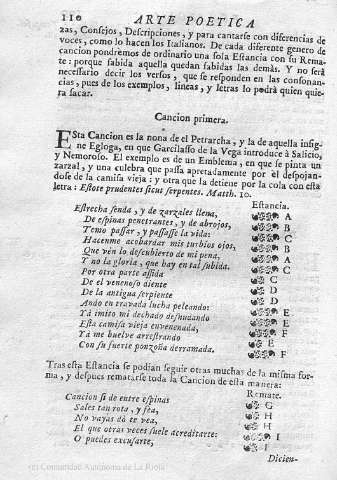 110 ARTE POETICA
zas, Consejos, Descripciones, y para cantarse con diferencias de
voces, como lo hacen los Italianos. De cada diferente genero de
cancion pondrèmos de ordinario una sola Estancia con su Rema-
te: porque sabida aquella quedan sabidas las demàs. Y no serà
necessario decir los versos, que se responden en las consonan-
cias, pues de los exemplos, lineas, y letras lo podrà quien quie-
ra sacar.
Cancion primera.
ESta Cancion es la nona de el Petrarcha, y la de aquella insig-
ne Egloga, en que Garcilasso de la Vega introduce à Salicio,
y Nemoroso. El exemplo es de un Emblema, en que se pinta un
zarzal, y una culebra que passa apretadamente por èl despojan-
dose de la camisa vieja: y otra que la detiene por la cola con esta
letra: Estote prudentes sicut serpentes. Matth. 10.
Estancia.
Estrecha senda, y de zarzales llena, A
De espinas penetrantes, y de abrojos, B
Temo passar, y passasse la vida: C
Hacenme acobardar mis turbios ojos, B
Que vèn lo descubierto de mi pena, A
Y no la gloria, que hay en tal subida. C
Por otra parte assida C
De el venenoso diente D
De la antigua serpiente D
Ando en travada lucha peleando: E
Yà imito mi dechado desnudando E
Esta camisa vieja envenenada, F
Yà me buelve arrestrando E
Con su fuerte ponzoña derramada. F
Tras esta Estancia se podian seguir otras muchas de la misma for-
ma, y despues rematarse toda la Cancion de esta manera:
Remate.
Cancion si de entre espinas G
Sales tan rota, y fea, H
No vayas dò te vea, H
El que otras veces suele acreditarte: I
O puedes excusarte, I
Dicien-
(c) Comunidad Autónoma de La Rioja